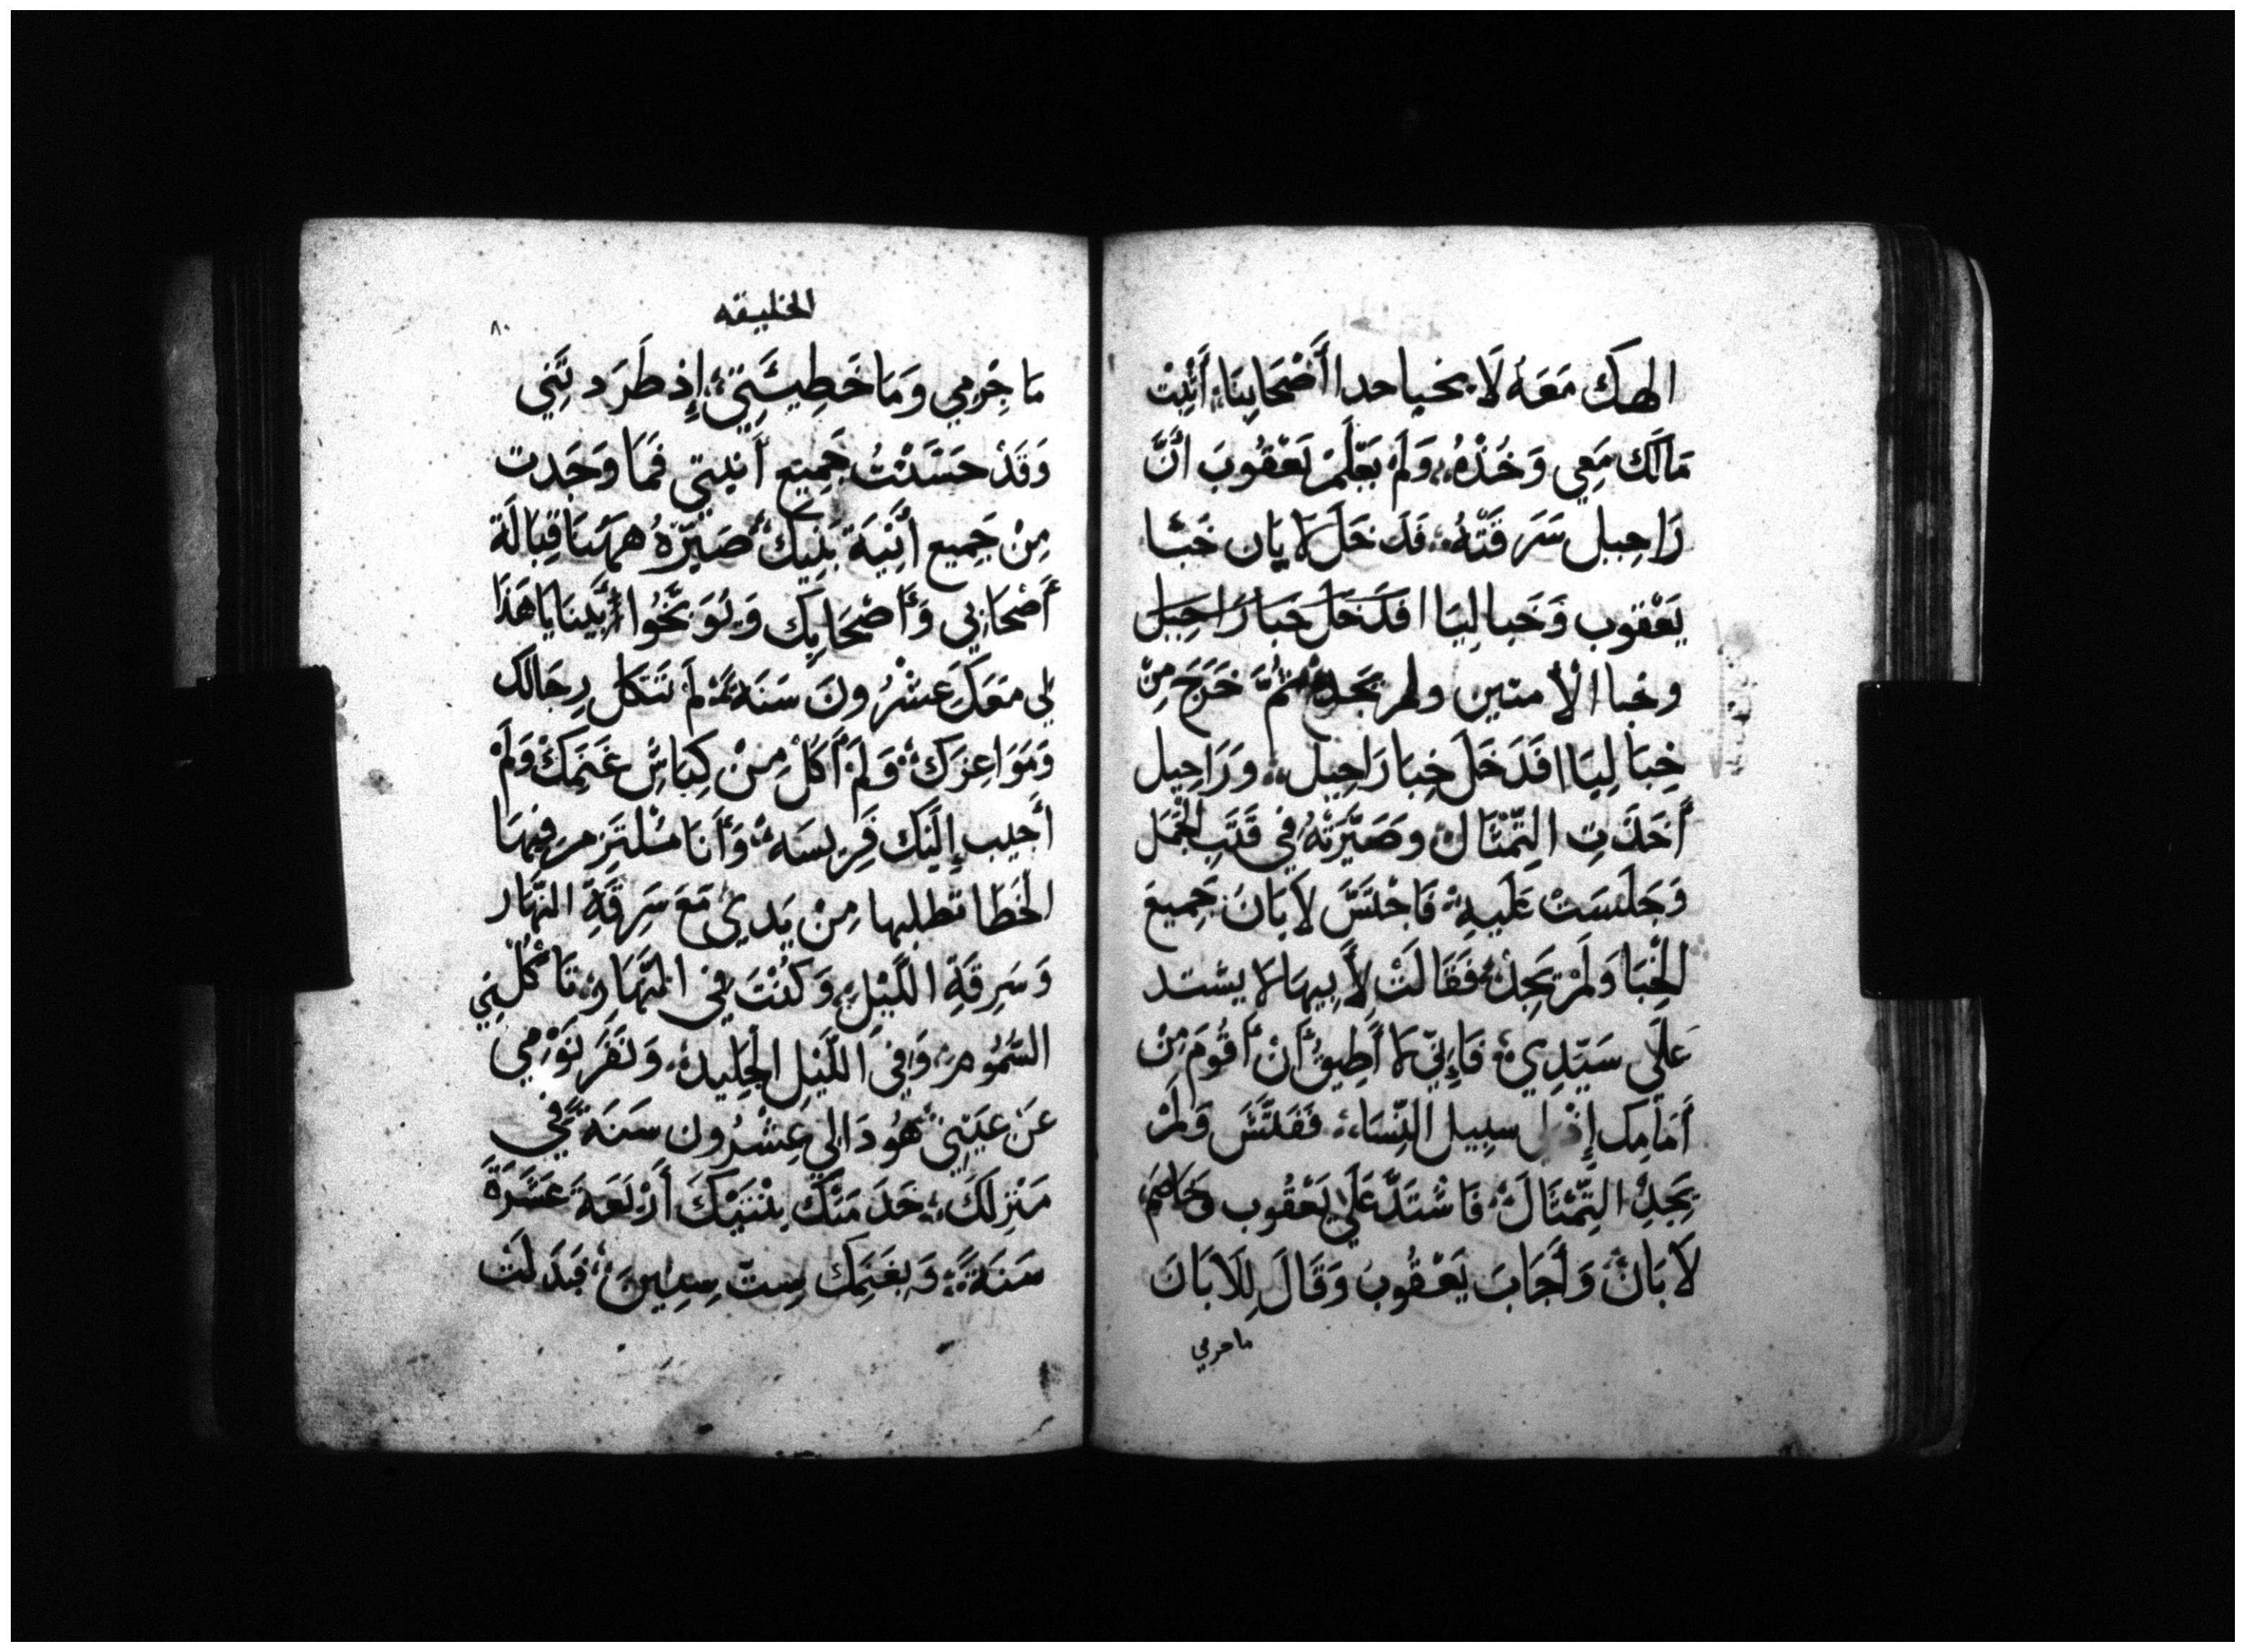 الهك مَعَهُ لَا يحيا حدا أَصْحَابِنَا، أَثْبِتْ
مَالَك مَعِي وَخُذْهُ، وَلَمْ يَعْلَمْ يَعْقُوبَ انَّ
رَاحِيل سَرَقَتْهُ، فَدَخَلَ لَابَان خَبَا
يَعْقوب وَخَبا لِيَا افَدَخَلَ خَبَا رَاحِيل
وخبا الأمتين ولم يَجِدْ ثُمَّ خَرَجَ مِنْ
خِبَا لِيَا افَدَخَلَ خِبَا رَاحِيل، وَرَاحِيل
أَخَذَتِ التِّمْثَالَ وصَيَّرَتْهُ فِي قَتَبِ الْجَمَل
وَجَلَسَتْ عَلَيهِ فَاجْتَسَّ لَابَانَ جَمِيعَ
الْخِبَا وَلَمْ يَجِدْ، فَقَالَتْ لأَبِيهَا لَا يشتد
عَلَى سَيِّدِي فَإِنِّي لَا أَطِيقُ أَنْ أَقُومَ مِنْ
أَمَامِك إِذ سبيل النِّسَاء، فَفَتَّشَ وَلَمْ
يَجِدْ التِّمْثَالَ فَاشْتَدَّ عَلَى يَعْقُوب وَخَاصَمَ
لَابَانَ وَأَجَابَ يَعْقُوبَ وَقَالَ لِلَابَانَ
ما جرمي
الخليقه
٨٠
مَا جِرْمِي وَمَا خَطِيئَتِي، إِذ طَرَدتَنِي
وَقَدْ حَسَّسْتُ جَمِيع أَنيتي فَمَا وَجَدت
مِنْ جَمِيع أَنِيَة بَيْتِكَ صَيِّرْهُ هَهُنَا قِبَالَة
أَصْحَابِي وَأَصْحَابِك وَيُوَبِّخُوا بَيْنَنَا يَا هَذَا
لِي مَعَكَ عِشْرُونَ سَنَة، لَمْ تَثكل رِجَالك
وَمَوَاعِزَك، وَلَمْ أَكُل مِنْ كِبَاشِ غَنَمِكَ وَلَمْ
أَجيب إِلَيْك فَرِيسَه، وَأَنَا مُلْتَزِم فِيهَا
الخَطَا تطلبها مِنْ يَدِي مَعَ سَرِقَةِ النَّهَار
وَسَرِقَةِ اللَّيْلِ، وَكُنْتَ فِي النَّهَارِ، تَأْكُلنِي
السَّمُوم، وَفِي اللَّيْلِ الْجَلِيد، وَنَفَرَ نَوْمِي
عَنْ عَيْنِي هُوذَا لِي عِشْرُون سَنَة فِي
مَنْزِلكَ، خَدَمْتُكَ بِبْنتَيْكَ أَرْبَعَة عَشَرَةَ
سَنَةً، وَبِغَنَمِك سِتّ سِنِينَ، فَبَدَلتَ